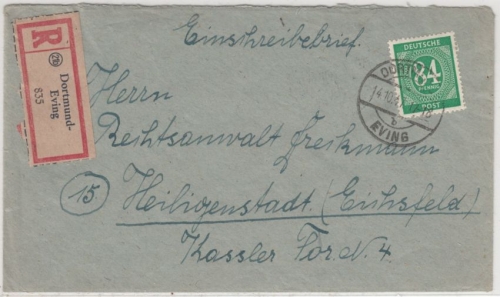 Einschreibebrief.
R
(21b) Dortmund-
Eving
635
DEUTSCHE
84
PFENNIG
POST
DORTMUND
14.10.
b
EVING
Herrn
Rechtsanwalt Freckmann
(15) Heiligenstadt (Eichsfeld)
Kassler Tor N. 4